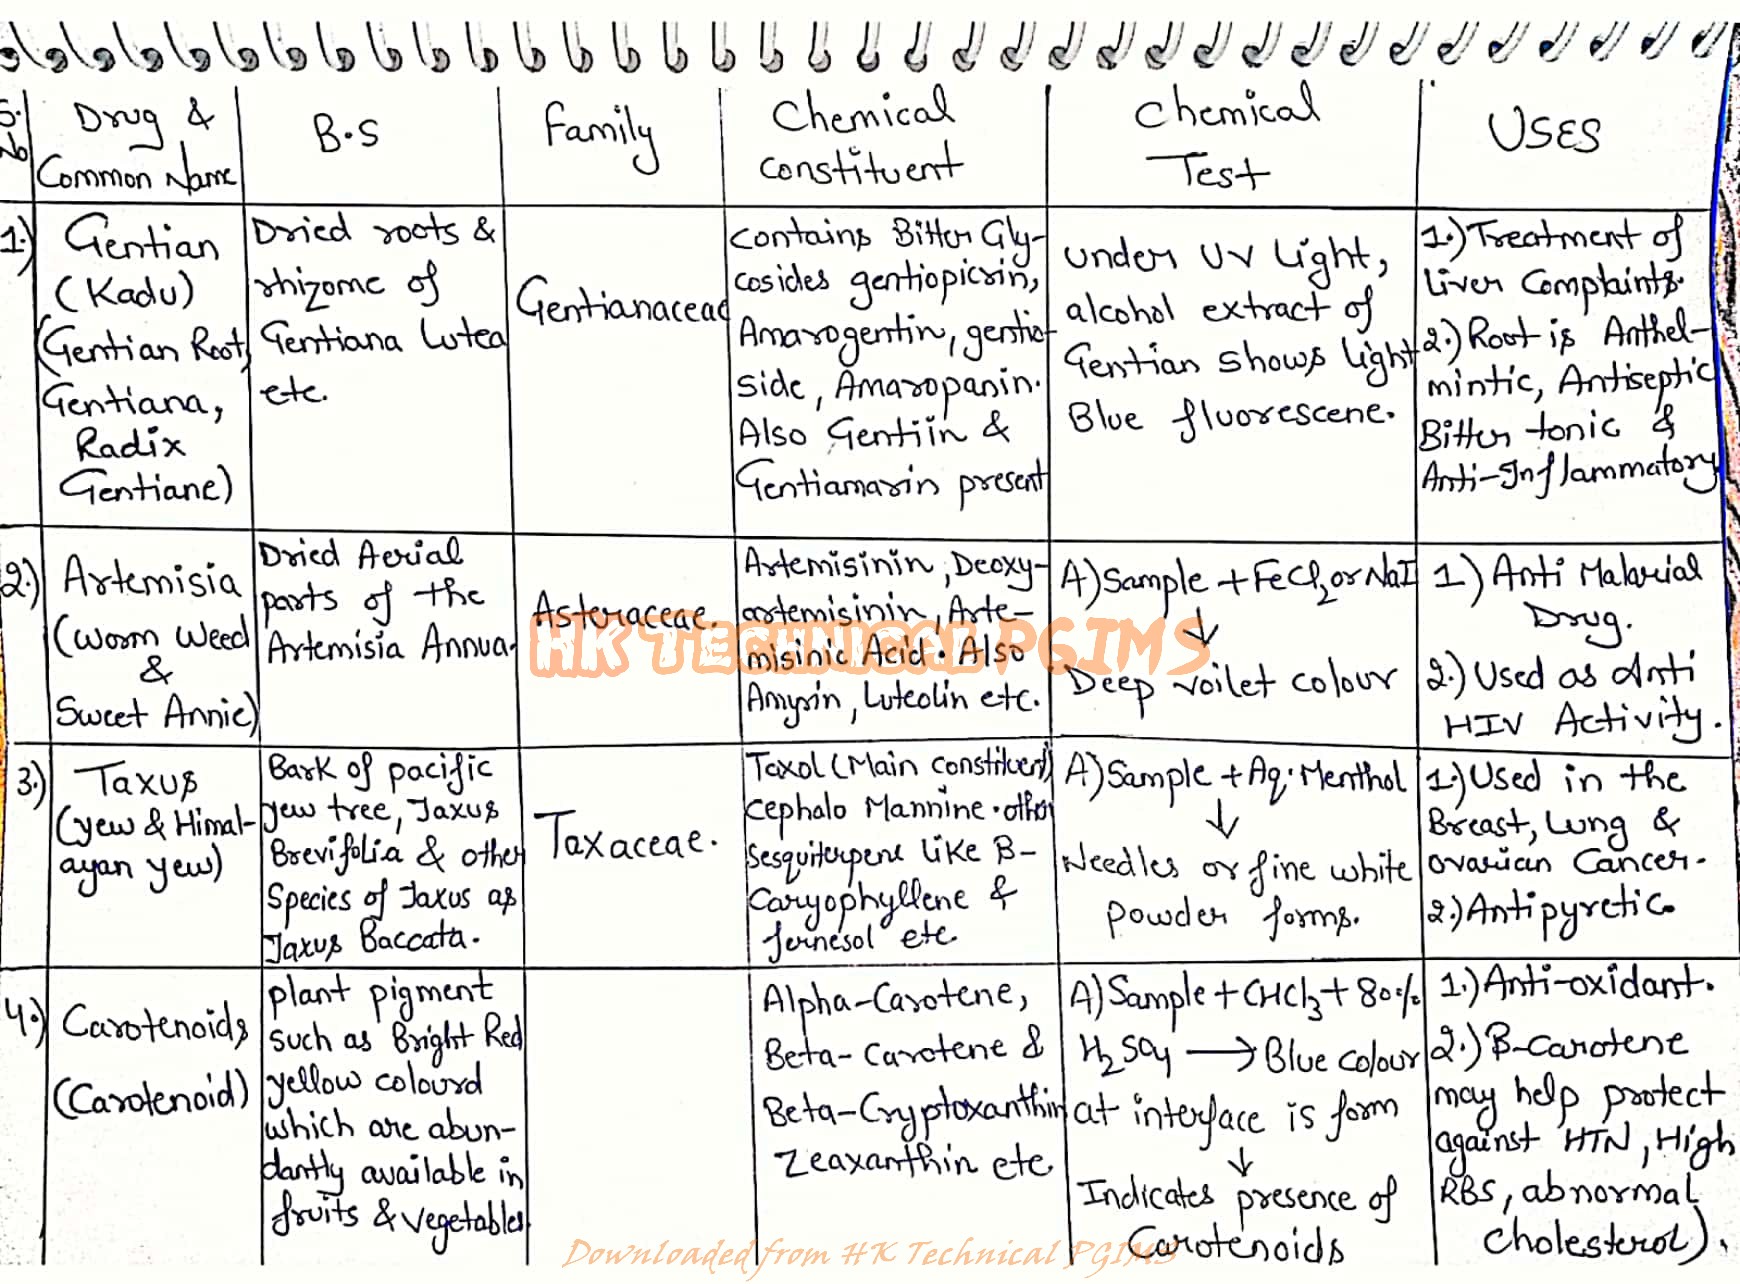 S. No
Drug &
Common Name
B.S
Family
Chemical
constituent
Chemical
Test
USES
1.)
Gentian
(Kadu)
(Gentian Root,
Gentiana,
Radix
Gentiane)
Dried roots &
rhizome of
Gentiana Lutea
etc.
Gentianaceae
contains Bitter Gly-
cosides gentiopicrin,
Amarogentin, gentio-
side, Amaropanin.
Also Gentiin &
Gentiamarin present
under UV Light,
alcohol extract of
Gentian shows light
Blue fluorescene.
1.) Treatment of
liver Complaints.
2.) Root is Anthel-
mintic, Antiseptic
Bitter tonic &
Anti-Inflammatory
2.)
Artemisia
(worm Weed
&
Sweet Annie)
Dried Aerial
parts of the
Artemisia Annua.
Asteraceae.
Artemisinin, Deoxy-
artemisinin, Arte-
misinic Acid. Also
Amyrin, Luteolin etc.
A) Sample + FeCl2 or NaI
↓
Deep voilet colour
1.) Anti Malarial
Drug.
2.) Used as Anti
HIV Activity.
3.)
Taxus
(yew & Himal-
ayan yew)
Bark of pacific
yew tree, Taxus
Brevifolia & other
Species of Taxus as
Taxus Baccata.
Taxaceae.
Taxol (Main constituent)
cephalo Mannine. other
Sesquiterpene like B-
Caryophyllene &
fernesol etc
A) Sample + Aq. Menthol
↓
Needles or fine white
powder forms.
1.) Used in the
Breast, Lung &
ovarian Cancer.
2.) Antipyretic.
4.)
Carotenoids
(Carotenoid)
plant pigment
such as Bright Red
yellow colourd
which are abun-
dantly available in
fruits & vegetables
Alpha-Carotene,
Beta-Carotene &
Beta-Cryptoxanthin
Zeaxanthin etc
A) Sample + CHCl3 + 80%
H2SO4 → Blue colour
at interface is form
↓
Indicates presence of
Carotenoids
1.) Anti-oxidant.
2.) B-carotene
may help protect
against HTN, High
RBS, abnormal
cholesterol).
HK TECHNICAL PGIMS
Downloaded from HK Technical PGIMS